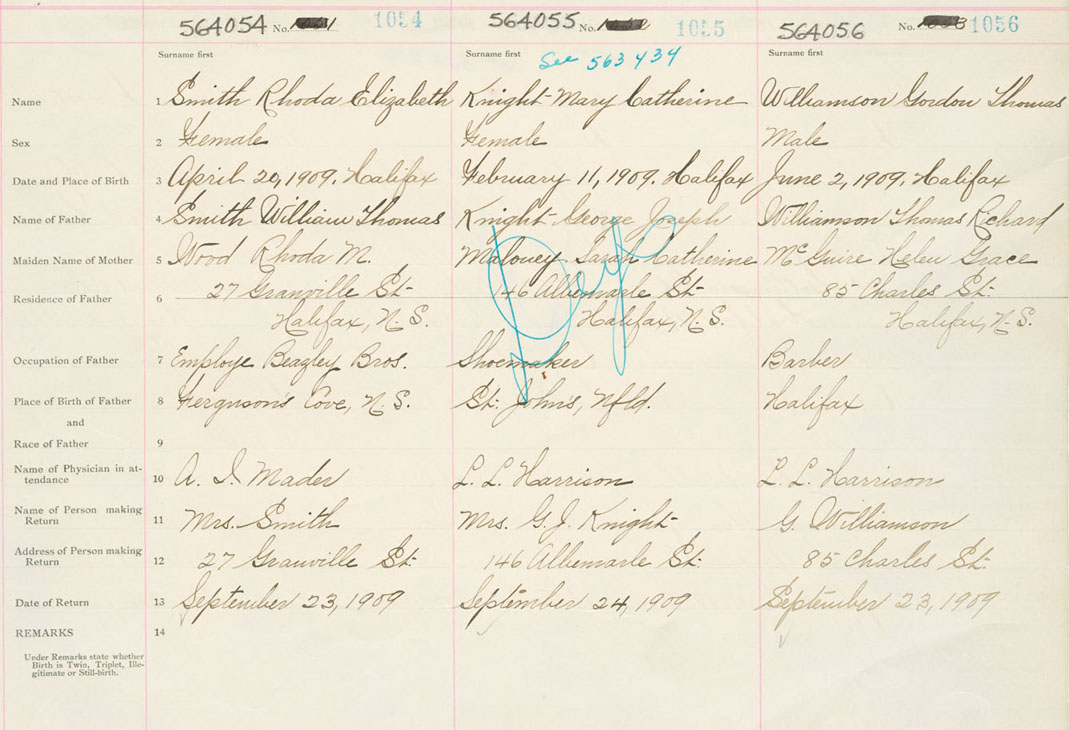 564054 No. 1054 564055 No. 1055 564056 No. 1056
Surname first Surname first See 563434 Surname first
Name 1 Smith Rhoda Elizabeth Knight Mary Catherine Williamson Gordon Thomas
Sex 2 Female Female Male
Date and Place of Birth 3 April 20, 1909. Halifax February 11, 1909. Halifax June 2, 1909. Halifax
Name of Father 4 Smith William Thomas Knight George Joseph Williamson Thomas Richard
Maiden Name of Mother 5 Wood Rhoda M. Maloney Sarah Catherine McGuire Helen Grace
Residence of Father 6 27 Granville St. 146 Albemarle St. 85 Charles St.
Halifax, N.S. Halifax, N.S. Halifax, N.S.
Dup
Occupation of Father 7 Employe Beazley Bros. Shoemaker Barber
Place of Birth of Father 8 Ferguson's Cove, N.S. St. John's, Nfld. Halifax
and
Race of Father 9
Name of Physician in at-
tendance 10 A. I. Mader L. L. Harrison L. L. Harrison
Name of Person making
Return 11 Mrs. Smith Mrs. G. J. Knight G. Williamson
Address of Person making
Return 12 27 Granville St. 146 Albemarle St. 85 Charles St.
Date of Return 13 September 23, 1909 September 24, 1909 September 23, 1909
REMARKS 14
Under Remarks state whether
Birth is Twin, Triplet, Ille-
gitimate or Still-birth.